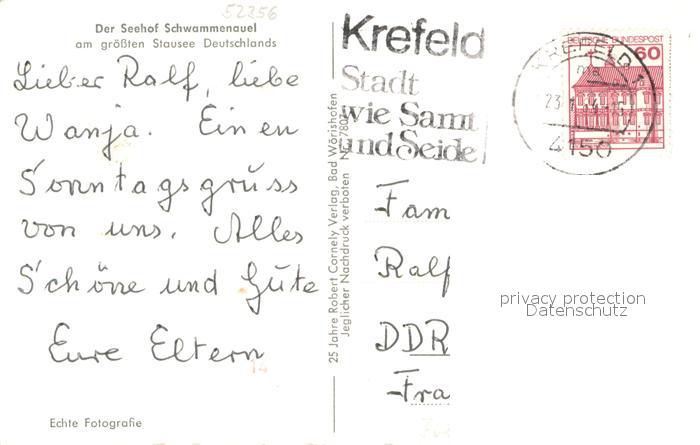 52356
Der Seehof Schwammenauel
am größten Stausee Deutschlands
Lieber Ralf, liebe
Wanja. Einen
Sonntagsgruss
von uns. Alles
Schöne und Gute
Eure Eltern
Echte Fotografie
25 Jahre Robert Cornely Verlag, Bad Wörishofen
Jeglicher Nachdruck verboten
Krefeld
Stadt
wie Samt
und Seide
DEUTSCHE BUNDESPOST
60
KREFELD 1
4150
Fam
Ralf
DDR
Fra
privacy protection
Datenschutz